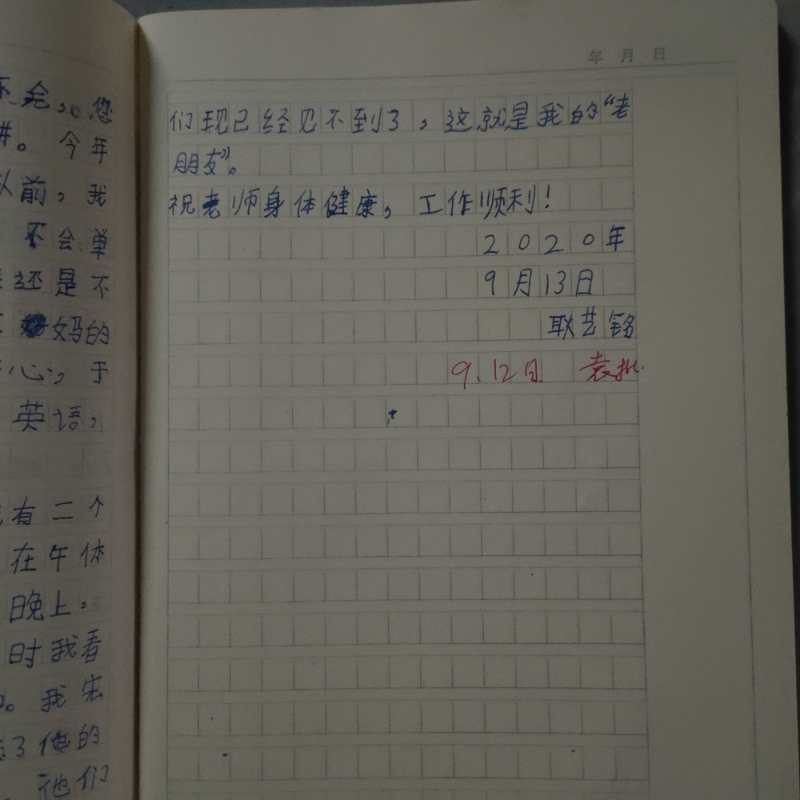 不会，您
讲。今年
以前，我
不会单
还是不
妈的
心，于
英语，
有二个
在午休
晚上，
时我看
。我
了他的
他们
年 月 日
们现已经见不到了，这就是我的“老
朋友”。
祝老师身体健康，工作顺利！
2020年
9月13日
耿艺铭
9.12日 袁批